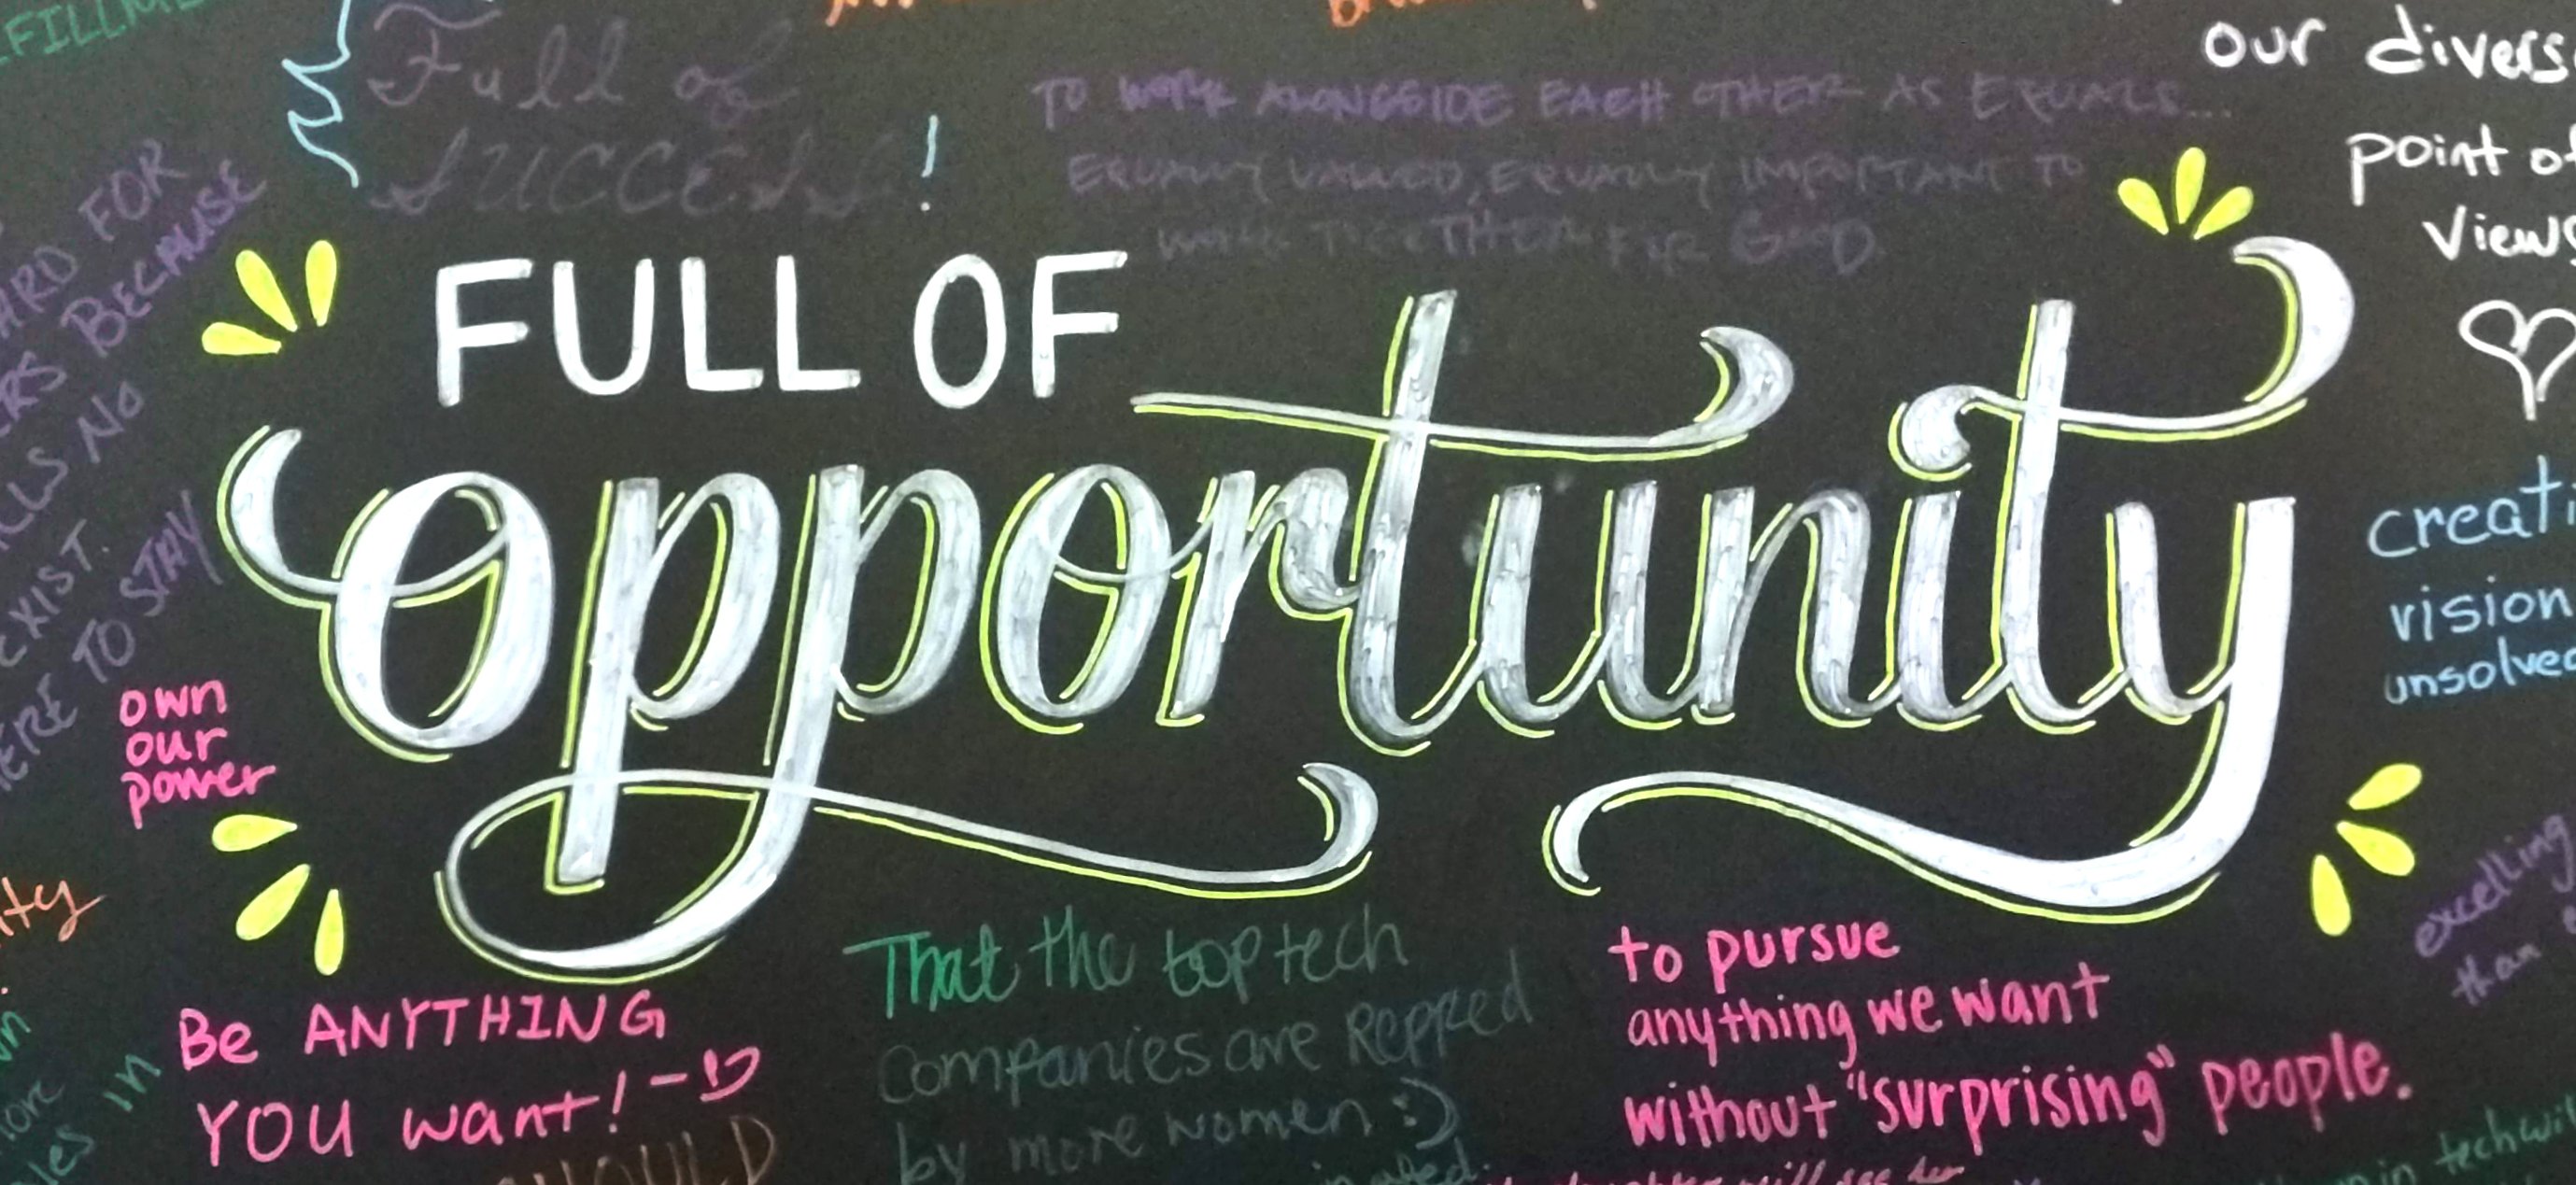 Full of
SUCCESS!
TO WORK ALONGSIDE EACH OTHER AS EQUALS...
EQUALLY VALUED, EQUALLY IMPORTANT TO
WORK TOGETHER FOR GOOD
our divers
point of
views
FOR
BECAUSE
NO
EXIST.
TO STAY
FULL OF
opportunity
own
our
power
creati
vision
unsolved
Be ANYTHING
YOU want!
That the top tech
companies are Repped
by more women :)
to pursue
anything we want
without "surprising" people.
excelling
than
in
in tech